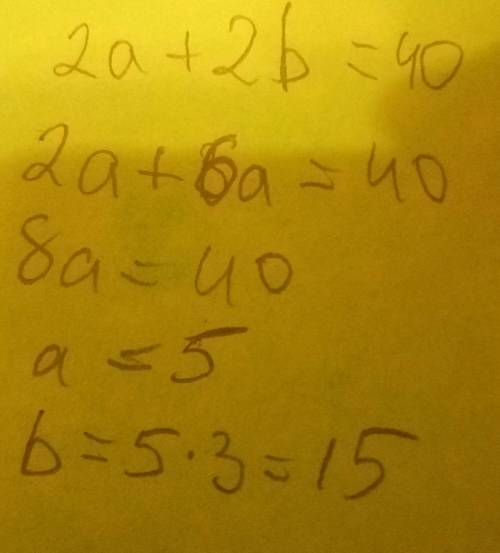 2a + 2b = 40
2a + 6a = 40
8a = 40
a = 5
b = 5 · 3 = 15